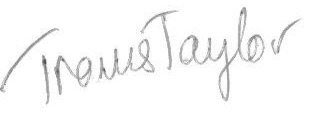 Travis Taylor